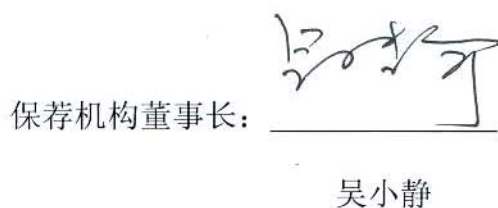 保荐机构董事长：
吴小静